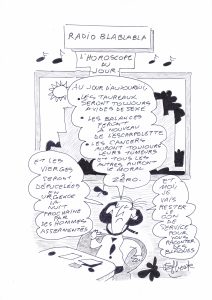 RADIO BLABLABLA
L'HOROSCOPE
DU
JOUR
AU JOUR D'AUJOURD'HUI,
LES TAUREAUX
SERONT TOUJOURS
AVIDES DE SEXE
LES BALANCES
FERONT
À NOUVEAU
DE L'ESCARPOLETTE
LES CANCERS
AURONT TOUJOURS
LEURS TUMEURS
ET TOUS LES
AUTRES AURONT
LE MORAL
À
ZÉRO.
ET LES
VIERGES
SERONT
DÉPUCELÉES
EN
URGENCE
LA
NUIT
PROCHAINE
PAR
DES HOMMES
ASSERMENTÉS
ET
MOI,
JE
VAIS
RESTER
DE
SERVICE
POUR
VOUS
RACONTER
DES